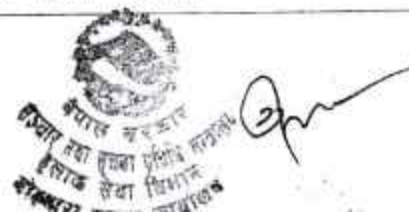 नेपाल सरकार
सञ्चार तथा सूचना प्रविधि मन्त्रालय
हुलाक सेवा विभाग